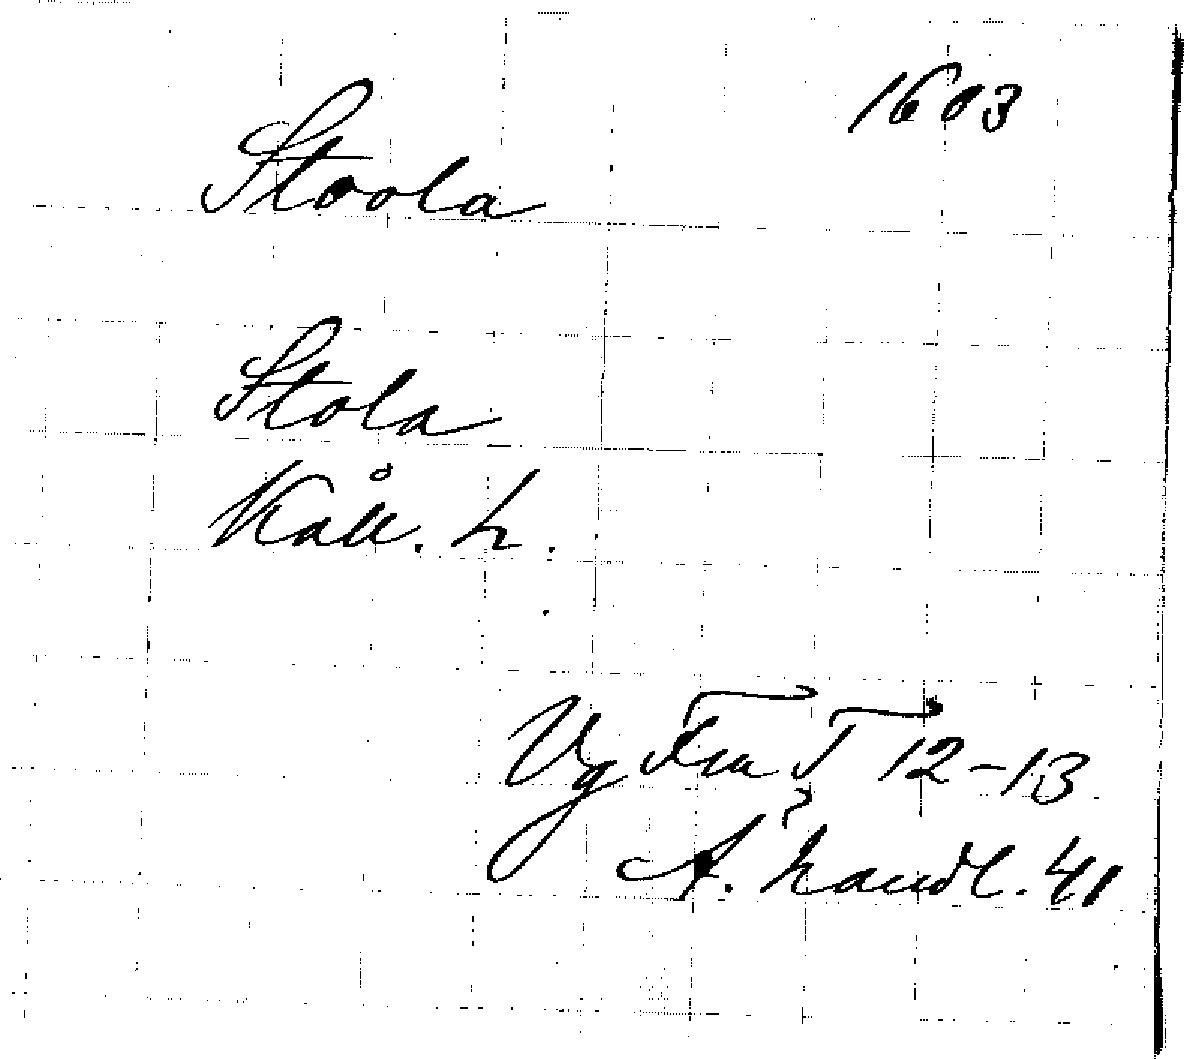 1603
Stoola
Stola
Kåk. h.
Vg Fra T 12-13
A. handl. 41